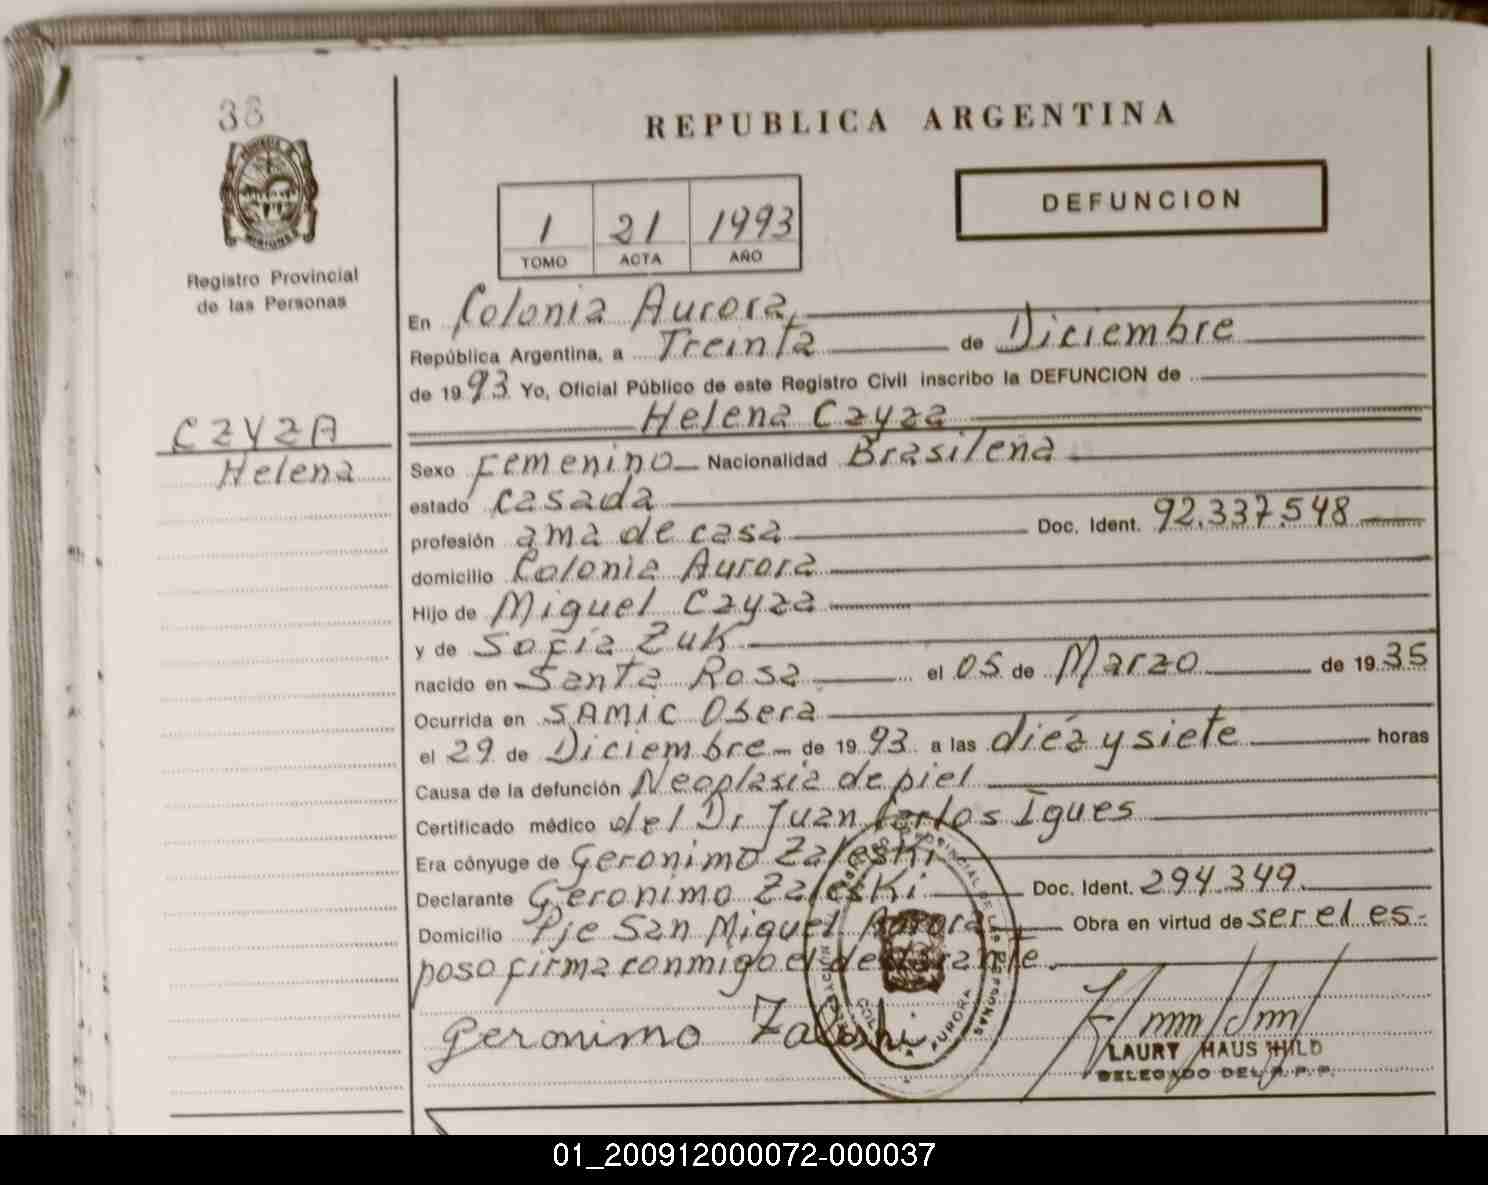 38
REPUBLICA ARGENTINA
DEFUNCION
1 21 1993
TOMO ACTA AÑO
Registro Provincial
de las Personas
CZYZA
Helena
En Colonia Aurora,
República Argentina, a Treinta de Diciembre
de 1993 Yo, Oficial Público de este Registro Civil inscribo la DEFUNCION de
Helena Czyza
Sexo Femenino Nacionalidad Brasileña
estado casada
profesión ama de casa Doc. Ident. 92.337.548
domicilio Colonia Aurora
Hijo de Miguel Czyza
y de Sofía Zuk
nacido en Santa Rosa el 05 de Marzo de 1935
Ocurrida en SAMIC Oberá
el 29 de Diciembre de 1993 a las diez y siete horas
Causa de la defunción Neoplasia de piel
Certificado médico del Dr Juan Carlos Igues
Era cónyuge de Geronimo Zaleski
Declarante Geronimo Zaleski Doc. Ident. 294.349
Domicilio Pje San Miguel Aurora Obra en virtud de ser el es-
poso firma conmigo el declarante.
Geronimo Zaleski
LAURY HAUS HILD
DELEGADO DEL R.P.P.
01_200912000072-000037